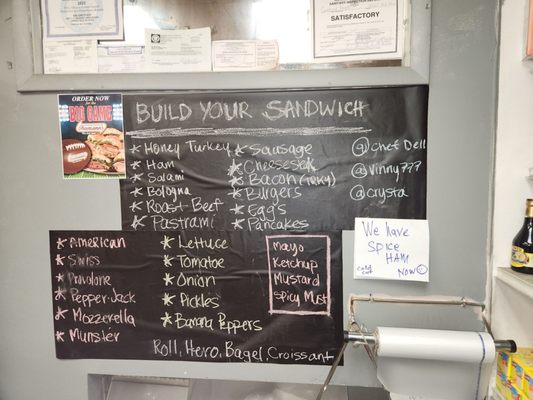 SATISFACTORY
ORDER NOW
for the
BIG GAME
BUILD YOUR SANDWICH
* Honey Turkey
* Ham
* Salami
* Bologna
* Roast-Beef
* Pastrami
* Sausage
* Cheeses
* Bacon (TRKY)
* Burgers
* Egg's
* Pancakes
@Chef Dell
@Vinny777
@crysta
* AMERICAN
* Swiss
* Provalone
* Pepper-Jack
* Mozzerella
* Munster
* Lettuce
* Tomatoe
* Onion
* Pickles
* Banana Peppers
Mayo
Ketchup
Mustard
Spicy Must
Roll, Hero, Bagel, Croissant
We have
SPICE
HAM
COLD CUT NOW